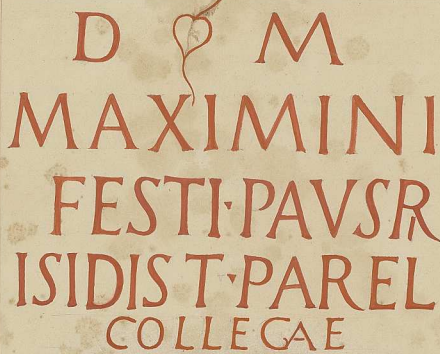 D M
MAXIMINI
FESTI·PAVSR
ISIDIS T·PAREL
COLLEGAE